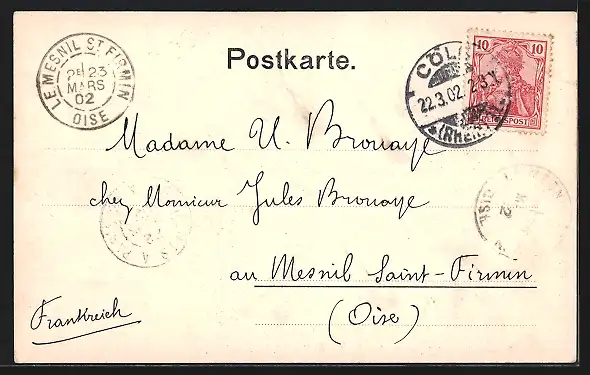 Postkarte.
LE MESNIL ST FIRMIN
2E 23
MARS
02
OISE
CÖLN
22.3.02.
(RHEIN)
10 10
REICHSPOST
Madame U. Brouaye
chez Monsieur Jules Brouaye
au Mesnil Saint-Firmin
(Oise)
Frankreich